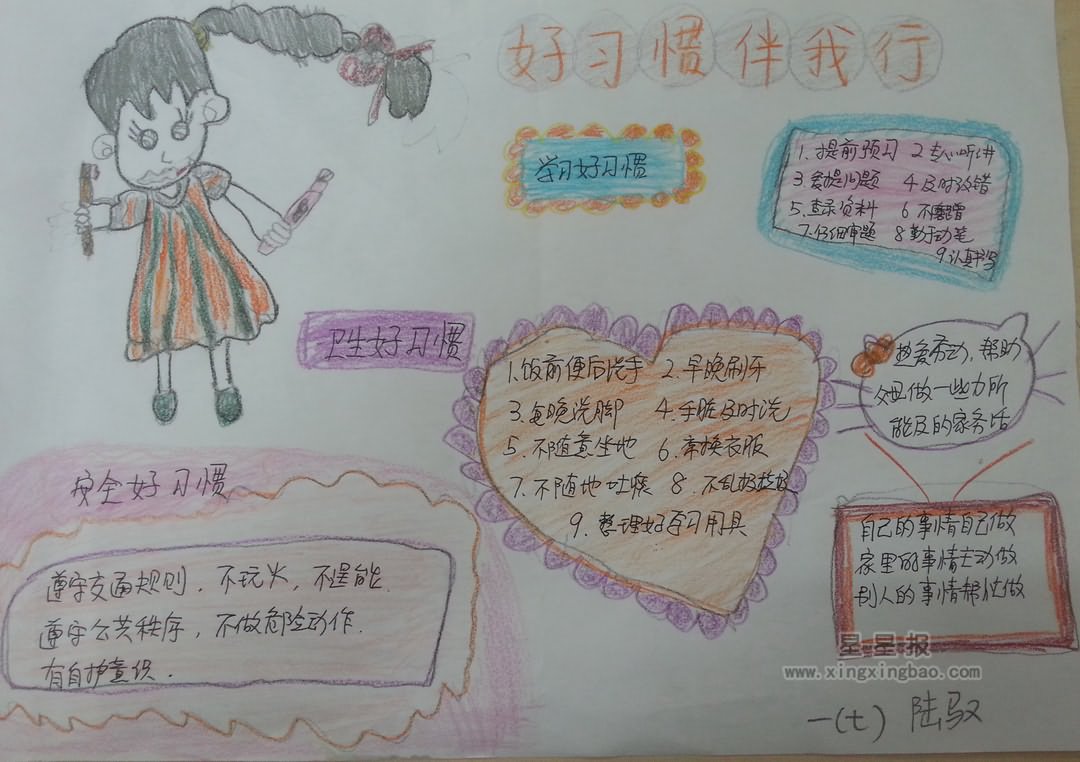 好习惯伴我行
学习好习惯
1.提前预习 2 专心听讲
3 敢提问题 4 及时改错
5.查录资料 6 不磨蹭
7.仔细审题 8 勤于动笔
9.认真书写
卫生好习惯
1.饭前便后洗手 2.早晚刷牙
3.每晚洗脚 4.手脏及时洗
5.不随意坐地 6.亲换衣服
7.不随地吐痰 8.不乱扔垃圾
9.整理好学习用具
热爱劳动,帮助
父母做一些力所
能及的家务活
安全好习惯
遵守交通规则,不玩火,不逞能.
遵守公共秩序,不做危险动作.
有自护意识.
自己的事情自己做
家里的事情主动做
别人的事情帮忙做
星星报
www.xingxingbao.com
一(七) 陆驭